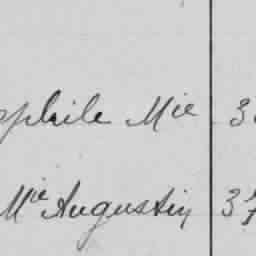 phile Mie 3
Mie Augustin 37